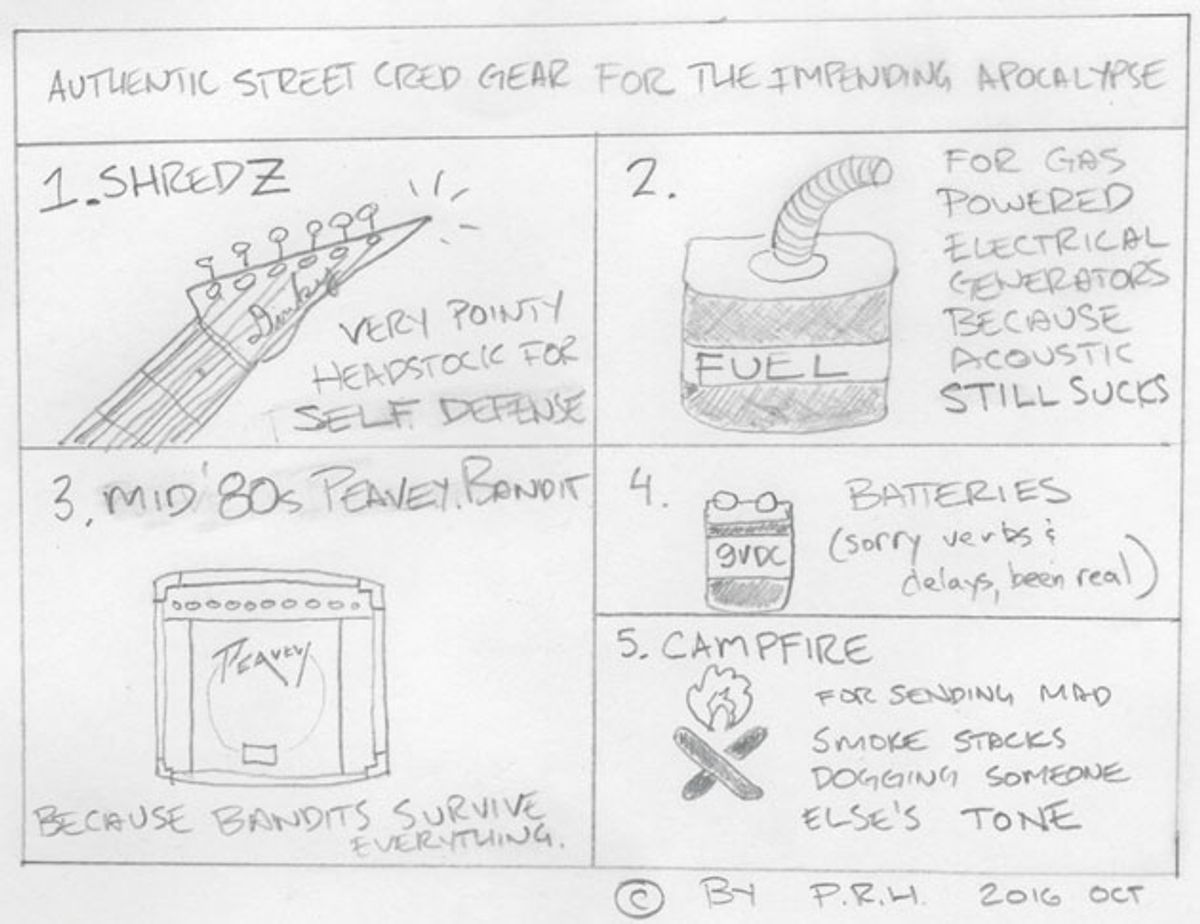 AUTHENTIC STREET CRED GEAR FOR THE IMPENDING APOCALYPSE
1. SHREDZ
Dinky
VERY POINTY
HEADSTOCK FOR
SELF DEFENSE
2.
FUEL
FOR GAS
POWERED
ELECTRICAL
GENERATORS
BECAUSE
ACOUSTIC
STILL SUCKS
3. MID '80s PEAVEY BANDIT
PEAVEY
BECAUSE BANDITS SURVIVE
EVERYTHING.
4.
9VDC
BATTERIES
(sorry verbs &
delays, been real)
5. CAMPFIRE
FOR SENDING MAD
SMOKE STACKS
DOGGING SOMEONE
ELSE'S TONE
© BY P.R.H. 2016 OCT